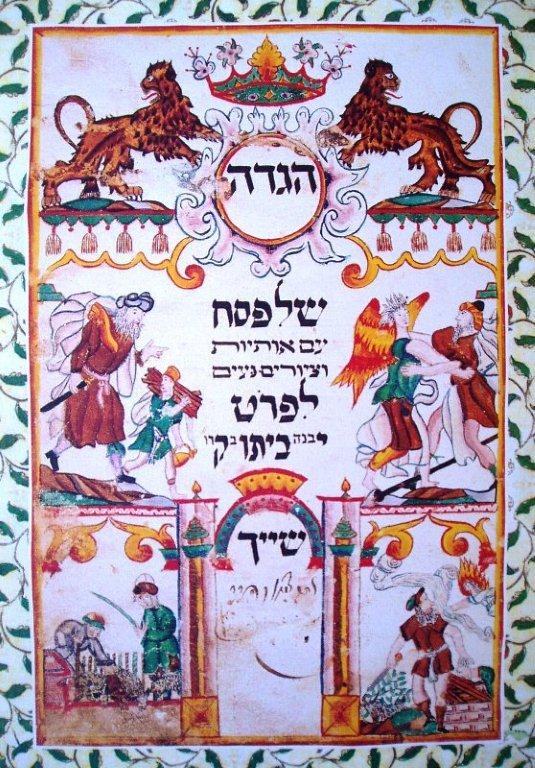 הגדה
של פסח
עם אותיות
וציורים נעים
לפרט
יבנה ביתו בקרו
לפק
שייך